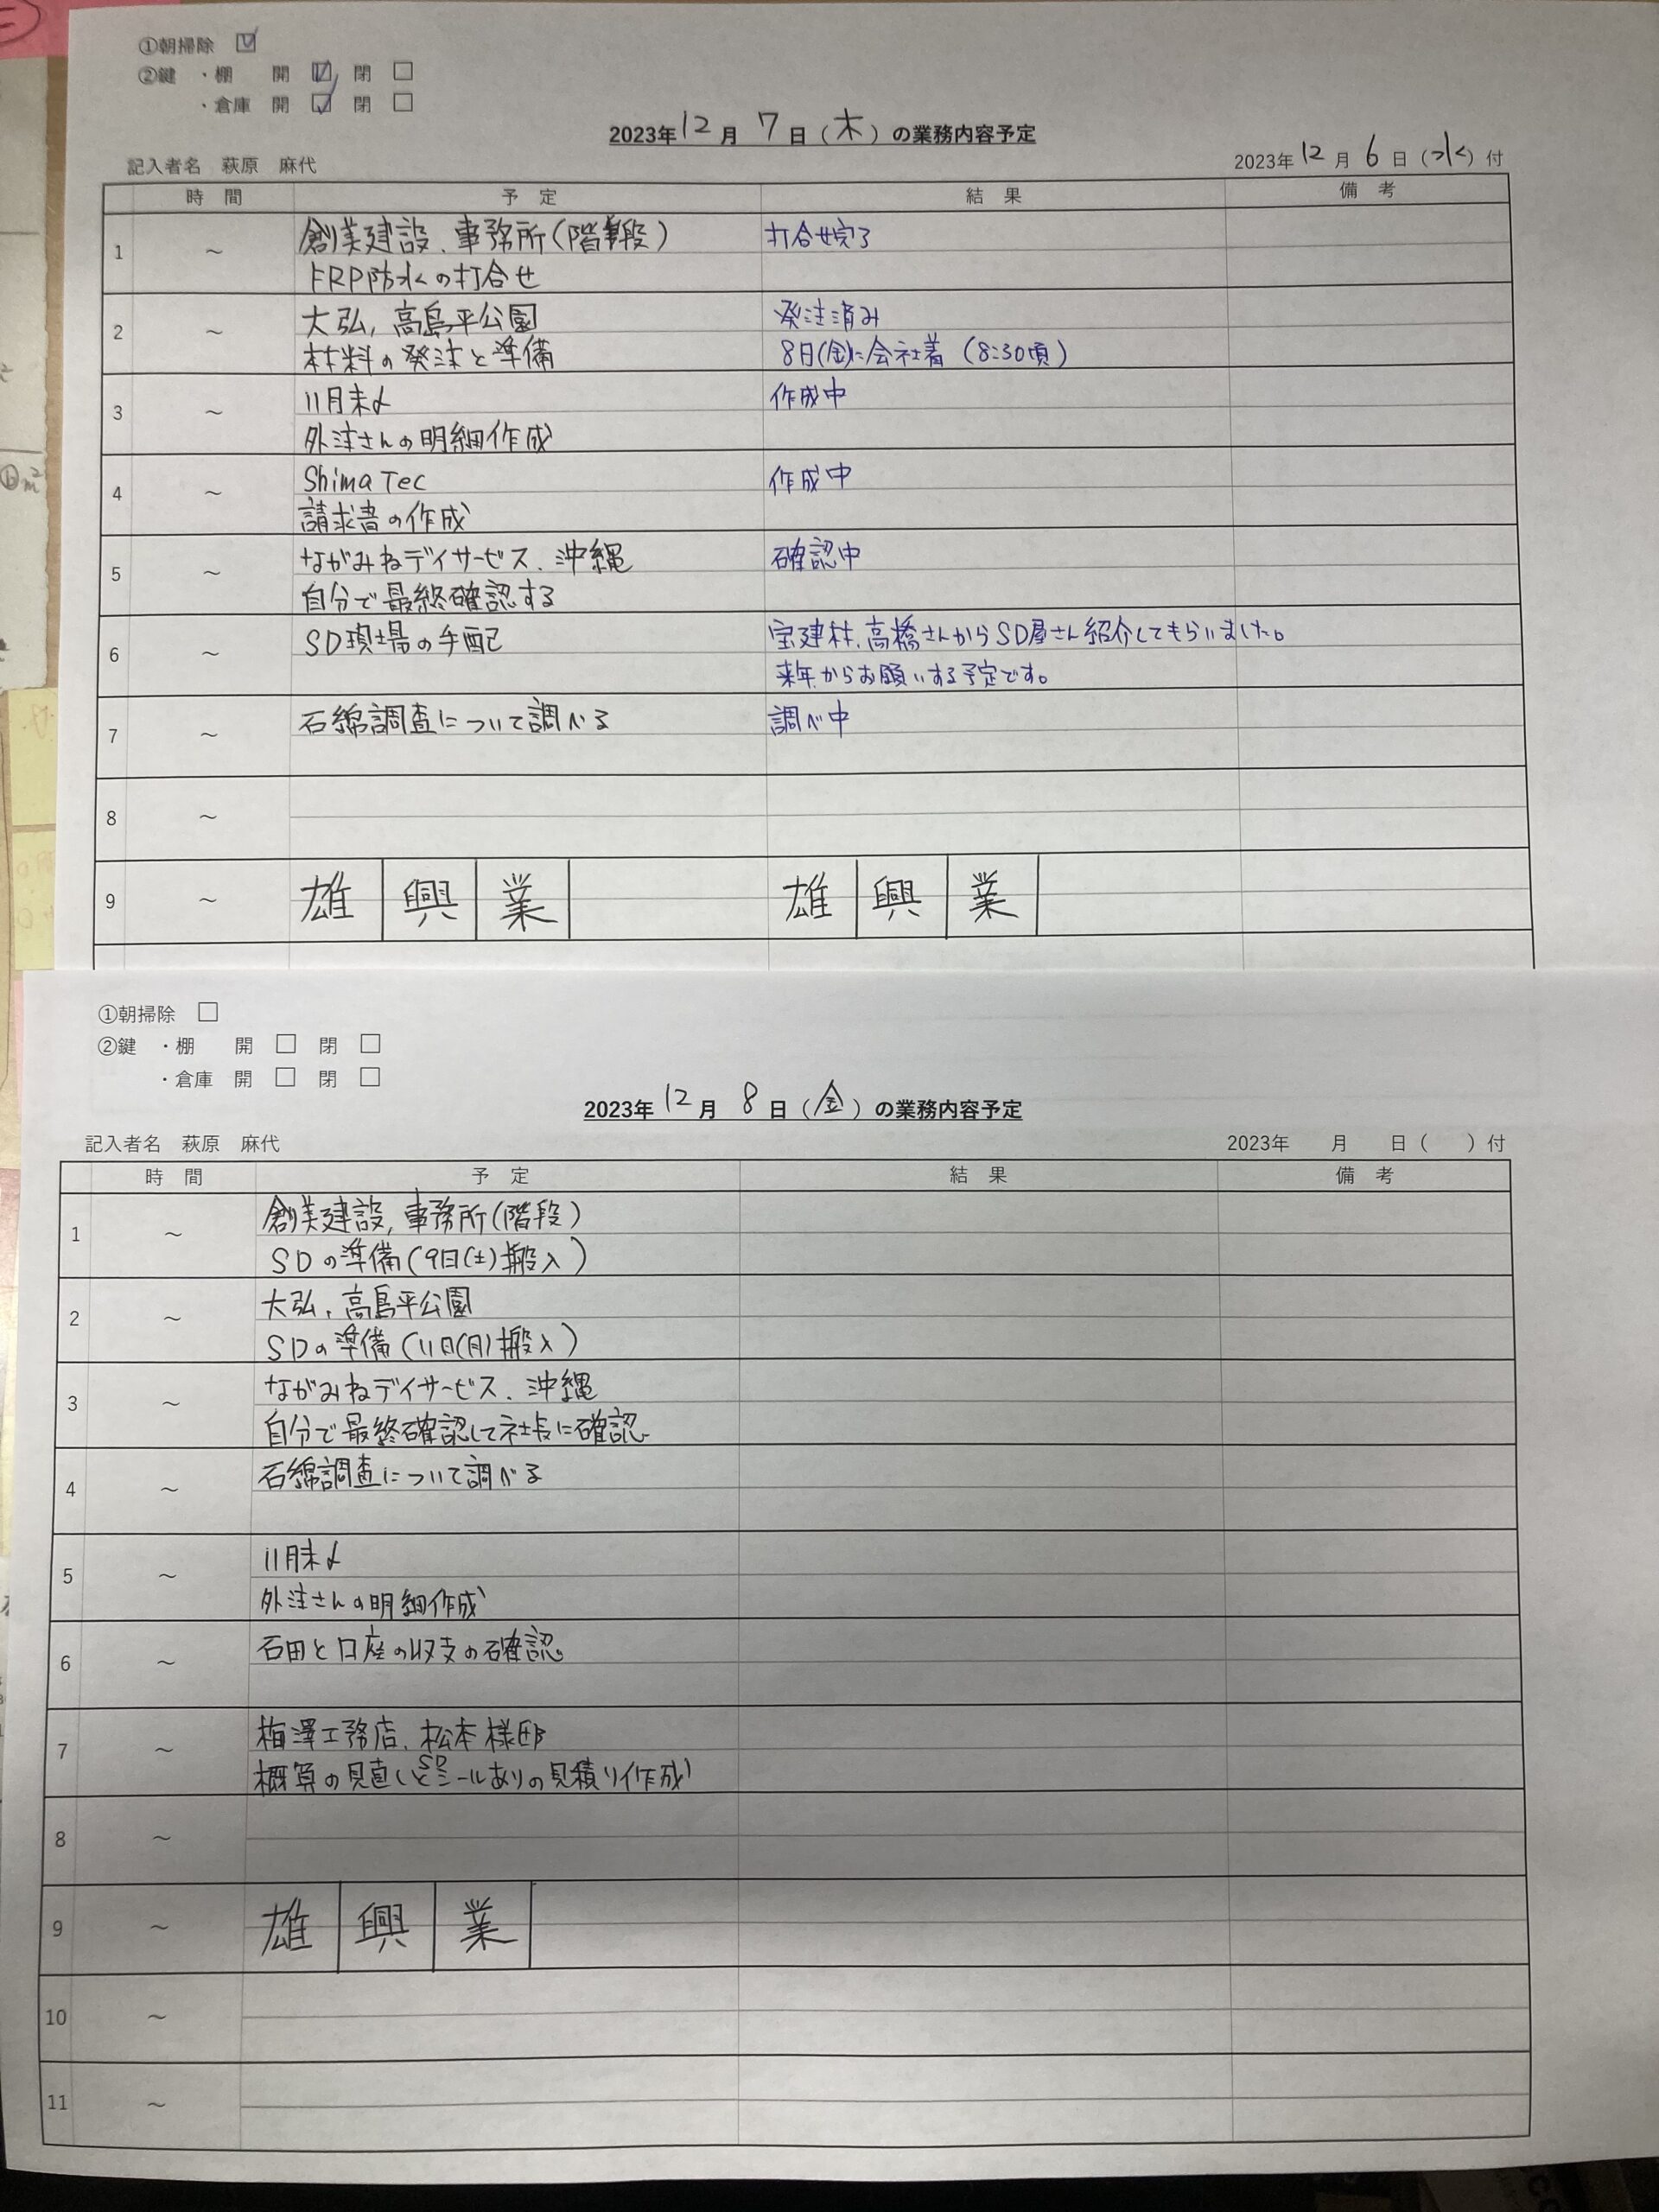 ①朝掃除 ☑
②鍵 ・棚 開 ☑ 閉 □
・倉庫 開 ☑ 閉 □
2023年12月7日（木）の業務内容予定
記入者名 萩原 麻代
2023年12月6日（水）付
時 間 予 定 結 果 備 考
1 ～ 創美建設、事務所(階段) 打合せ完了
FRP防水の打合せ
2 ～ 大弘, 高島平公園 発注済み
材料の発注と準備 8日(金)に会社着 (8:30頃)
3 ～ 11月末〆 作成中
外注さんの明細作成
4 ～ Shima Tec 作成中
請求書の作成
5 ～ ながみねデイサービス、沖縄 確認中
自分で最終確認する
6 ～ SD現場の手配 宝建材、高橋さんからSD屋さん紹介してもらいました。
来年からお願いする予定です。
7 ～ 石綿調査について調べる 調べ中
8 ～
9 ～ 雄 興 業 雄 興 業
①朝掃除 □
②鍵 ・棚 開 □ 閉 □
・倉庫 開 □ 閉 □
2023年12月8日（金）の業務内容予定
記入者名 萩原 麻代
2023年 月 日（ ）付
時 間 予 定 結 果 備 考
1 ～ 創美建設, 事務所(階段)
SDの準備(9日(土)搬入)
2 ～ 大弘, 高島平公園
SDの準備(11日(月)搬入)
3 ～ ながみねデイサービス、沖縄
自分で最終確認して社長に確認
4 ～ 石綿調査について調べる
5 ～ 11月末〆
外注さんの明細作成
6 ～ 石田と口座の収支の確認
7 ～ 梅澤工務店、松本様邸
概算の見直しとSDシールありの見積り作成
8 ～
9 ～ 雄 興 業
10 ～
11 ～